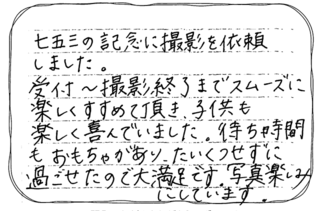 七五三の記念に撮影を依頼
しました。
受付～撮影終了までスムーズに
楽しくすすめて頂き、子供も
楽しく喜んでいました。待ち時間
もおもちゃがあり、たいくつせずに
過ごせたので大満足です。写真楽しみ
にしています。